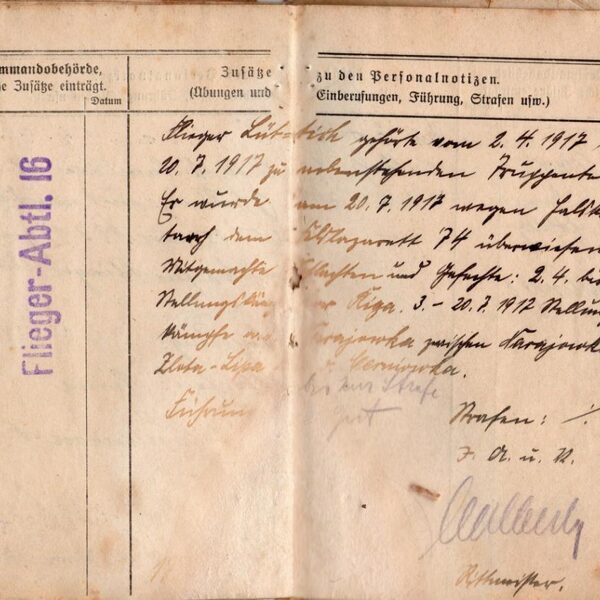 mmandobehörde,
e Zusätze einträgt.
Datum
Zusätze zu den Personalnotizen.
(Übungen und Einberufungen, Führung, Strafen usw.)
Flieger-Abtl. 16
Flieger gehörte vom 2. 4. 1917
20. 7. 1917 zu nebenstehenden Truppente
Er wurde am 20. 7. 1917 wegen
dem Feldlazarett 74 überwiesen
Mitgemachte Schlachten und Gefechte: 2. 4. bis
Riga. 3. – 20. 7. 1917 Stellun
kämpfe Narajowka zwischen Narajowka
Zlota-Lipa
Strafe
Führung gut Strafen: ./.
J. A. u. V.
Rittmeister.